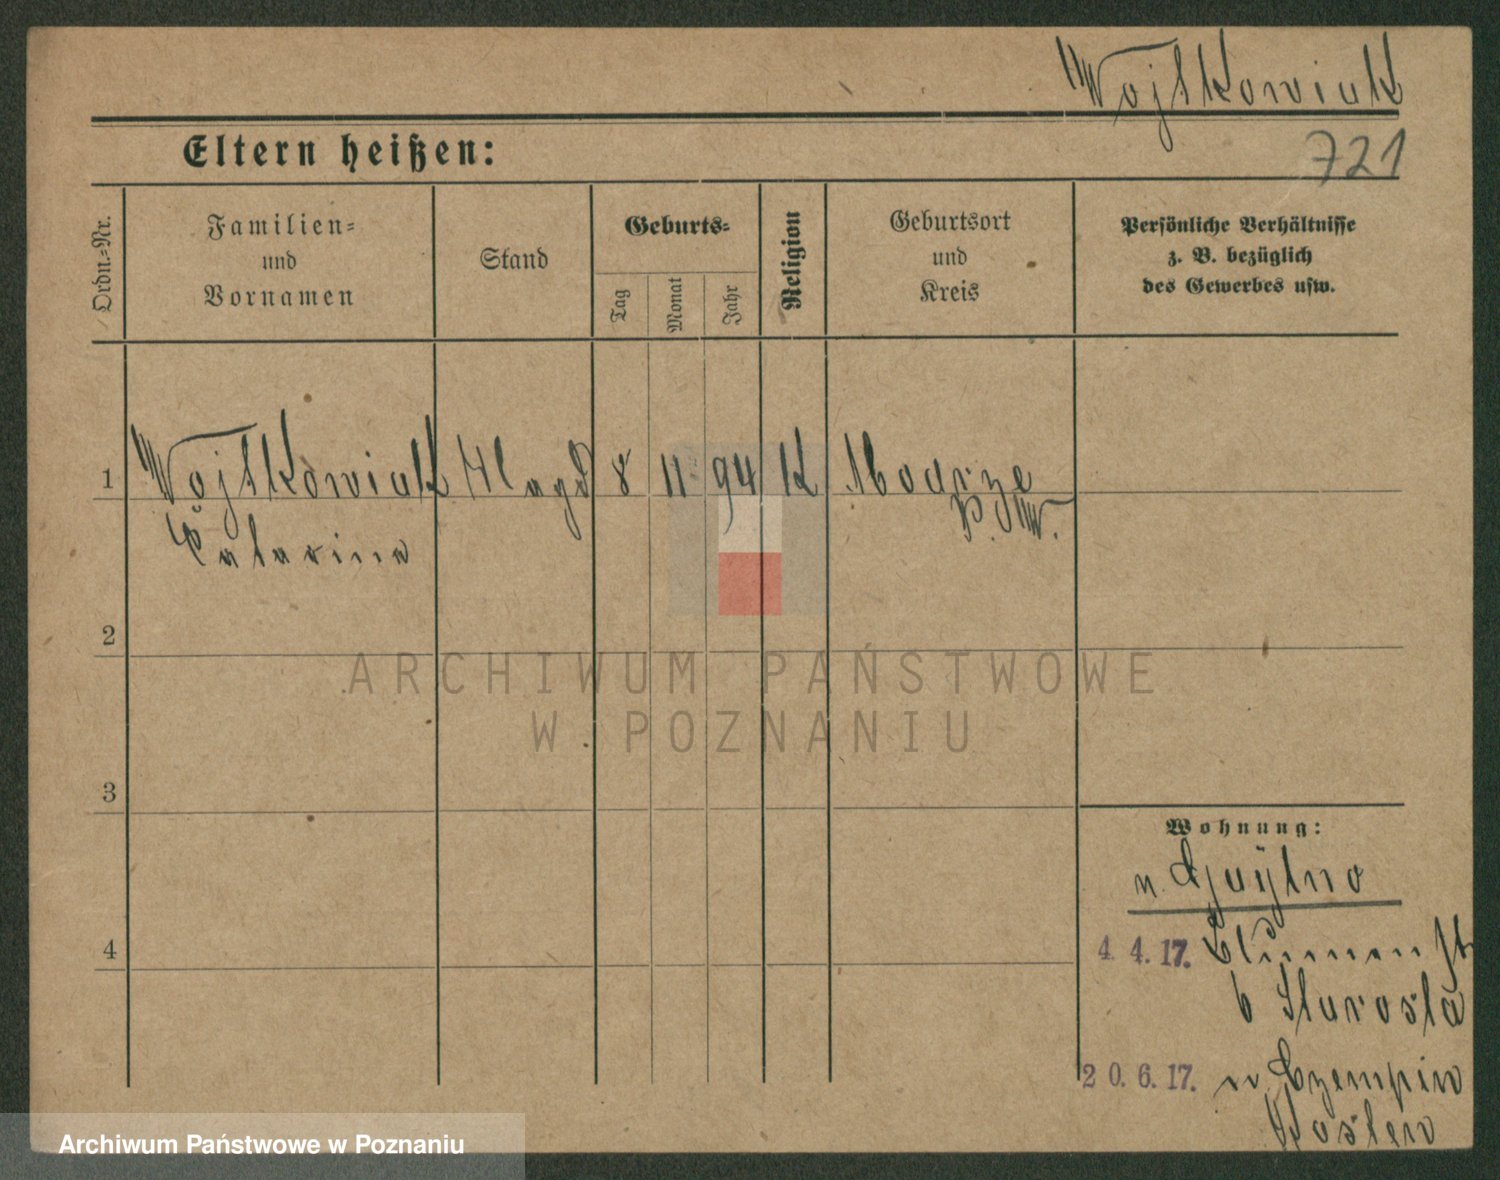 Wojtkowiak
Eltern heißen:
721
Ordn.=Nr.
Familien=
und
Vornamen
Stand
Geburts=
Tag
Monat
Jahr
Religion
Geburtsort
und
Kreis
Persönliche Verhältnisse
z. B. bezüglich
des Gewerbes usw.
1 Wojtkowiak Magd 8 11 94 K Modrze
P. W.
Catarina
2
ARCHIWUM PAŃSTWOWE
W POZNANIU
3
Wohnung:
n.
4
4. 4. 17. Blumenst
b Starosta
20. 6. 17. n Czempin
Kosten
Archiwum Państwowe w Poznaniu